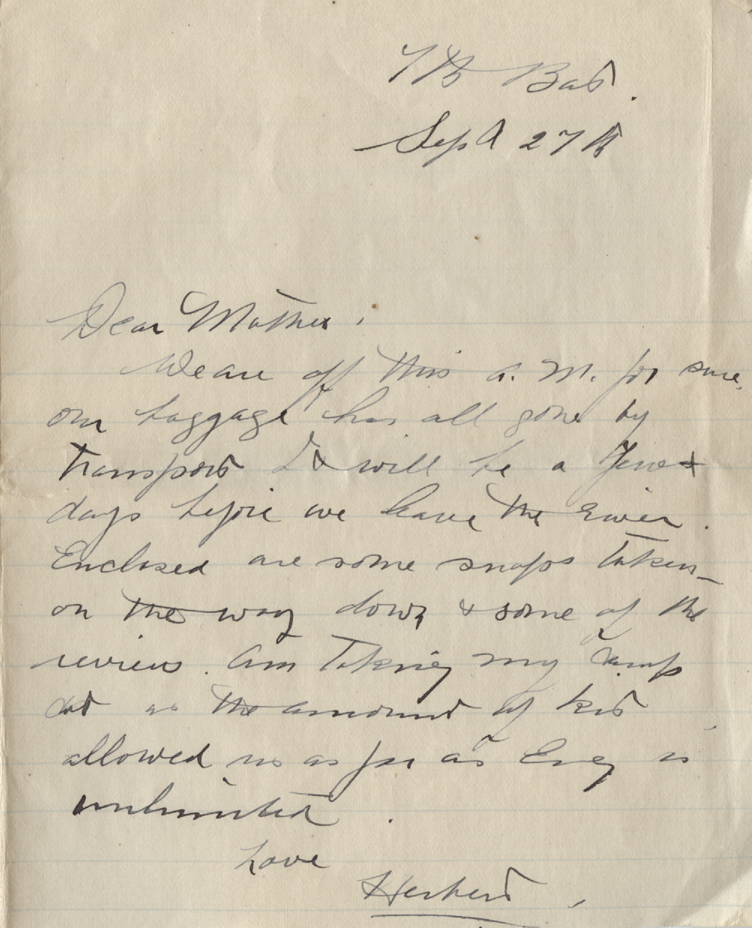 7th Bat.
Sept 27th
Dear Mother,
We are off this a.m. for sure,
our baggage has all gone by
transport It will be a few
days before we leave the river.
Enclosed are some snaps taken
on the way down & some of the
review. Am taking my camp
cot as the amount of kit
allowed us as far as Eng is
unlimited.
Love
Herbert,